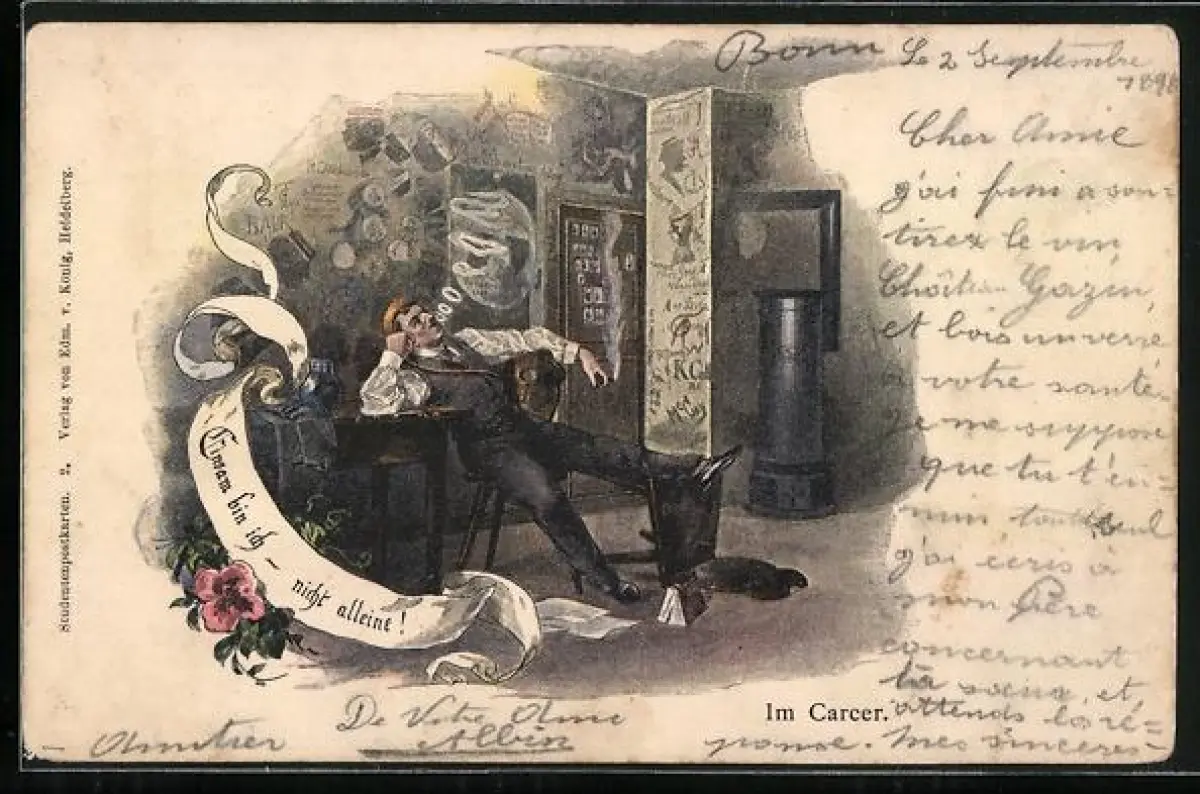 Bonn Le 2 Septembre
189
Cher Amie
j'ai fini a sou-
tirez le vin,
Gazin,
et bois un verre
a votre santé.
Je me suppose
que tu t'en-
nui seul
j'ai écris à
mon Père
concernant
ta soeur, et
attends la ré=
ponse. Mes sinceres-
De Votre Ami
Albin
Einsam bin ich –
nicht alleine!
Im Carcer.
Studentenpostkarten. 2. Verlag von Edm. v. König, Heidelberg.